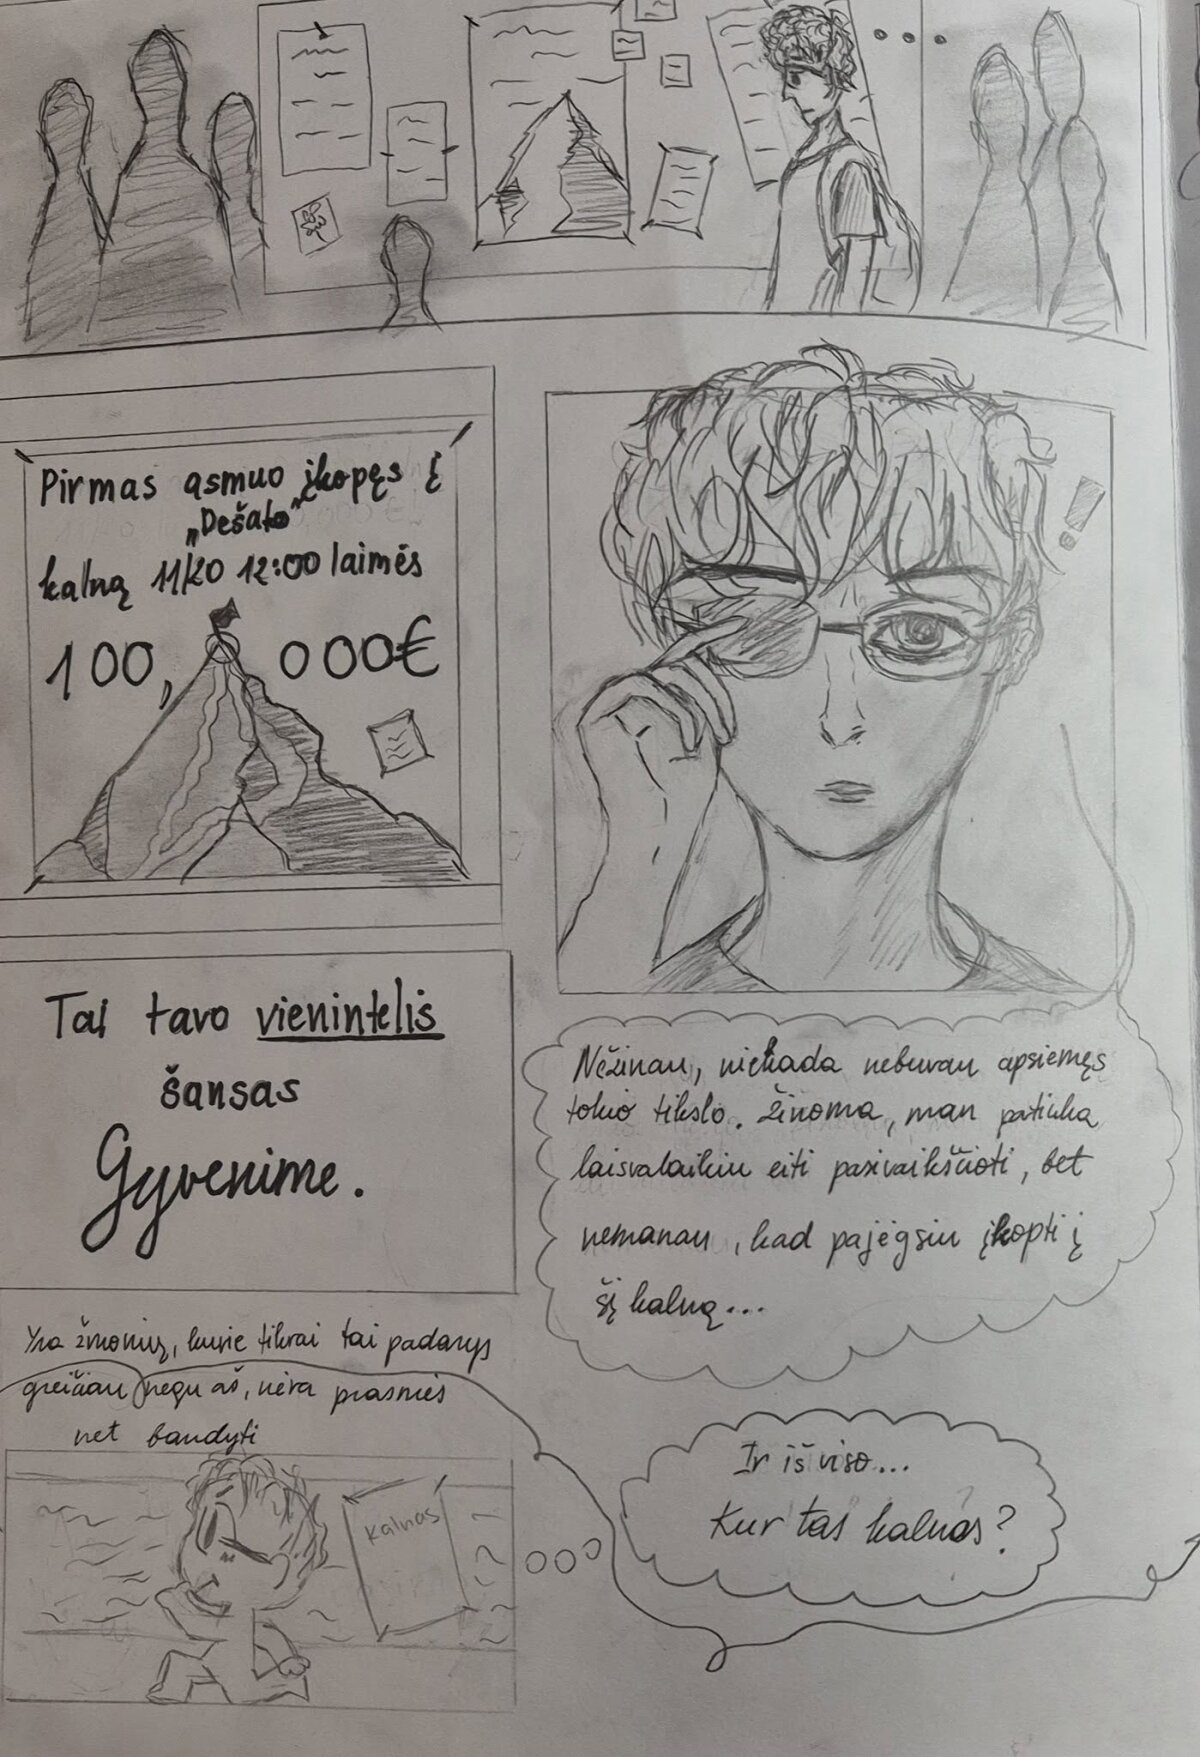 Pirmas asmuo įkopęs į
„Dešato"
kalną 11/20 12:00 laimės
100,000€
Tai tavo vienintelis
šansas
Gyvenime.
Nežinau, niekada nebuvau apsiemęs
tokio tikslo. Žinoma, man patinka
laisvalaikiu eiti pasivaikščioti, bet
nemanau, kad pajėgsiu įkopti į
šį kalną...
Yra žmonių, kurie tikrai tai padarys
greičiau negu aš, nėra prasmės
net bandyti
Kalnas
Ir iš viso...
Kur tas kalnas?